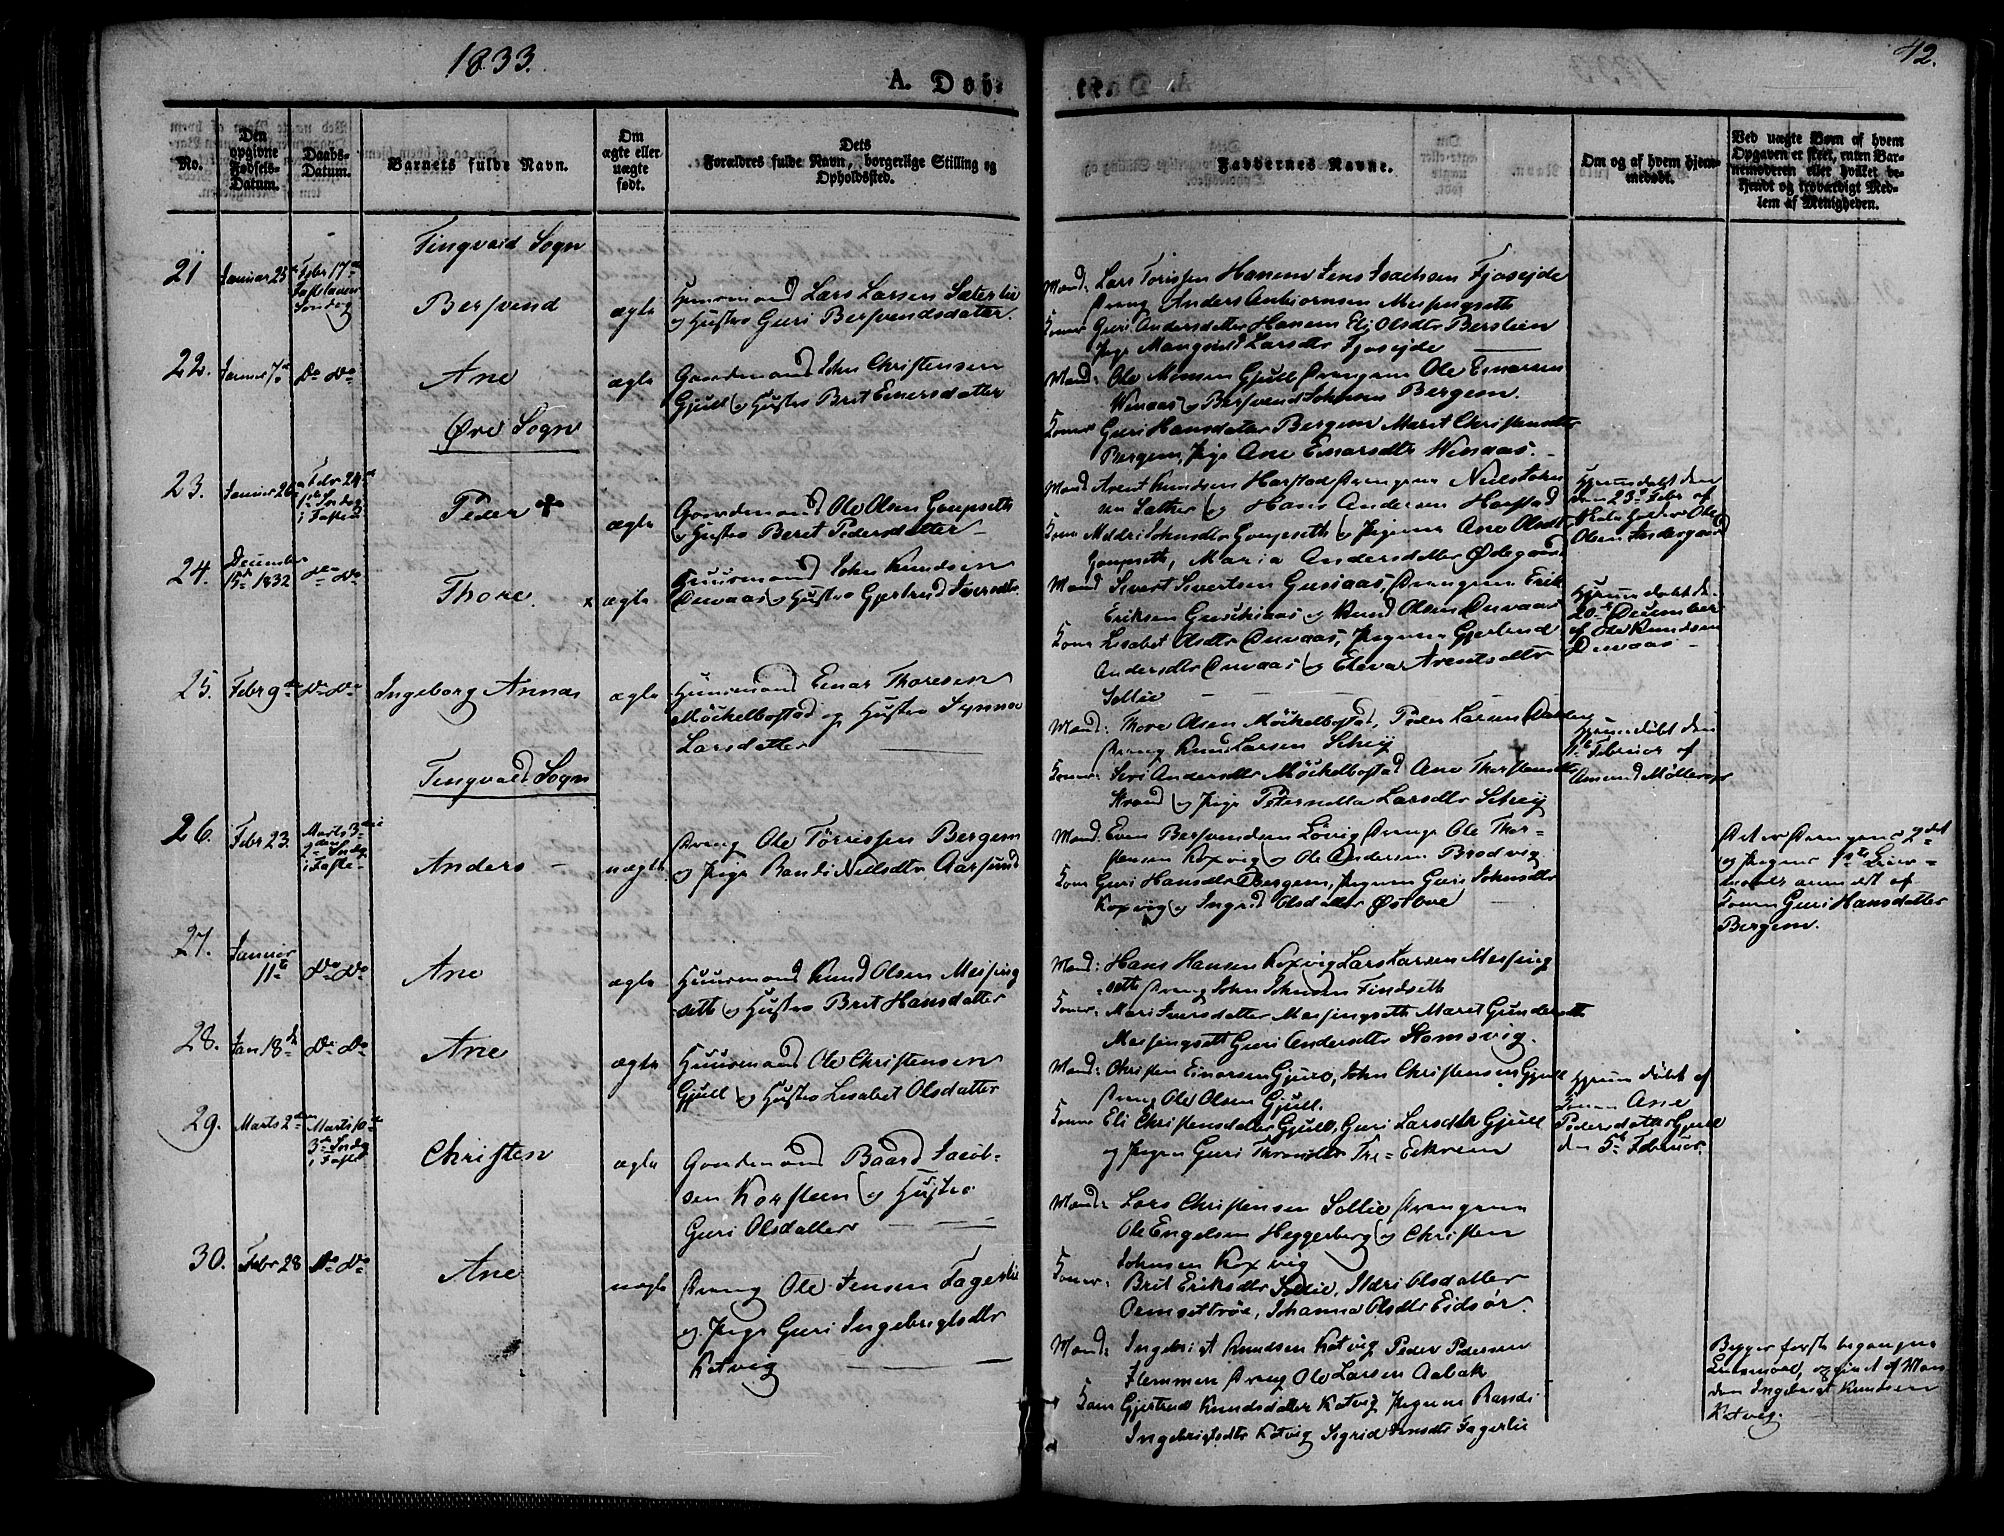 1833.
A. Døb-
42.
No.
Den
opgivne
Fødsels-
Datum.
Daabs-
Datum.
Barnets fulde Navn.
Om
ægte eller
uægte
født.
Dets
Forældres fulde Navn, borgerlige Stilling og
Opholdssted.
Faddernes Navne.
Om og af hvem hjem-
medøbt.
Ved uægte Børn af hvem
Opgaven er skeet, enten Bar-
nemoderen eller hvilket be-
kjendt og troværdigt Med-
lem af Menigheden.
Tingvold Sogn
21
Januar 25
Febr 17
Fastelavns
Søndag
Bersvend
ægte
Huusmand Lars Larsen Sæterlie
og Hustro Guri Bersvendsdatter.
Mænd: Lars Torissen Hanem Jens Isachsen Fjoseide
Dreng Anders Anbiørnsen Messingseth
Koner Guri Andersdatter Hanem Eli Olsdtr Berstein
Pige Mangnild Larsdtr Fjoseide
22.
Januar 7de
Do Do
Ane
ægte
Gaardmand John Christensen
Gjull og Hustro Brit Einersdatter
Mænd: Ole Monsen Gjull Drengene Ole Einarsen
Wenaas og Bersvend Johnsen Bergem.
Koner Guri Hansdatter Bergem Marit Christensdtr
Bergem, Pige Ane Einarsdtr Wenaas.
Øre Sogn
23.
Januar 26
Febr 24
1ste Søndag
i Faste
Peder +
ægte
Gaardmand Ole Olsen Goupseth
og Hustro Beret Pedersdatter
Mænd Arent Knudsen Harstad Drengene Niels John
sen Sæther og Hans Andersen Harstad
Kone Meldri Johnsdtr Goupseth og Pigerne Ane Olsdtr
Goupseth, Maria Andersdatter Ødegaard
Hjemmedøbt den
23de Febr af
Skoleholder Ole
Olsen Indergaard
24.
December
15de 1832
do Do
Thore.
x ægte
Huusmand John Knudsen
Duvaas og Hustro Gjertrud Iversdtr
Mænd Sivert Sivertsen Gusiaas, Drengene Erik
Eriksen Gusiaas og Knud Olsen Duvaas
Kone Lisabet Olsdtr Duvaas, Pigerne Gjertrud
Andersdtr Duvaas og Elevar Arentsdtr
Sollie
Hjemmedøbt d.
20de December
af Ole Knudsen
Duvaas
25.
Febr 9de
Do Do
Ingeborg Anna
ægte
Huusmand Einar Thoresen
Möckelbostad og Hustro Synnev
Larsdatter
Mænd: Thore Olsen Möckelbostad, Peder Larsen
Dreng Knud Larsen Schey
Koner: Siri Andersdtr Möckelbostad Ane Thorstensdtr
Strand og Pige Peternella Larsdtr Schey
Hjemmedøbt den
11te Februar af
Amund
Tingvold Sogn
26.
Febr 23.
Marts 3die
2den Søndag
i Faste
Anders
uægte
Dreng Ole Törrissen Bergem
og Pige Randi Nielsdtr Aarsund
Mænd. Even Bersvendsen Lövig Drenge Ole Thor-
stensen Koxvig og Ole Andersen Brodvig
Kone Guri Hansdtr Bergem, Pigerne Guri Johnsdtr
Koxvig og Ingrid Olsdatter Østboe
Det er Drengens 2det
og Pigens 1ste Leier-
maal anmeldt af
Konen Guri Hansdatter
Bergem.
27.
Januar
11te
Do Do
Ane
ægte
Huusmand Knud Olsen Messing
seth og Hustro Brit Hansdatter
Mænd: Hans Hansen Koxvig Lars Larsen Messing
seth Dreng John Johnsen Findseth
Koner: Mari Iversdatter Messingseth Maret Gundersdtr
Messingseth Guri Andersdtr Stomsvig.
28.
Jan 18de
Do Do
Ane
ægte
Huusmand Ole Christensen
Gjull og Hustro Lisabet Olsdatter
Mænd: Christen Einarsen Gjull, John Christensen Gjull
Dreng Ole Olsen Gjull.
Kone Eli Christensdatter Gjull, Guri Larsdtr Gjull
og Pigen Guri Thronsdtr Tre-Eekrem
Hjemmedøbt af
Konen Ane
Pedersdatter Gjull
den 5te Februar.
29.
Marts 2den
Marts 10de
3die Søndag
i Faste
Christen
ægte
Gaardmand Baard Jacob-
sen Korsteen og Hustro
Guri Olsdatter
Mænd: Lars Christensen Sollie Drengene
Ole Engelsen Heggerberg og Christen
Johnsen Koxvig
Koner: Brit Eriksdtr Sollie, Ildri Olsdatter
Oemsettrøe, Johanna Olsdtr Eidsör.
30.
Febr 28
Do Do
Ane
uægte
Dreng Ole Jensen Fagerlie
og Pige Guri Ingebrigtsdtr
Kotvig
Mænd: Ingebrigt Knudsen Kotvig Peder Pedersen
Flemmen Dreng Ole Larsen Aabak
Kone Gjertrud Knudsdatter Kotvig Pigerne Randi
Ingebrigtsdtr Kotvig Sigrid Jensdtr Fagerlie
Begges første begangne
Leiermaal, opgivet af Man
den Ingebrigt Knudsen
Kotvig.